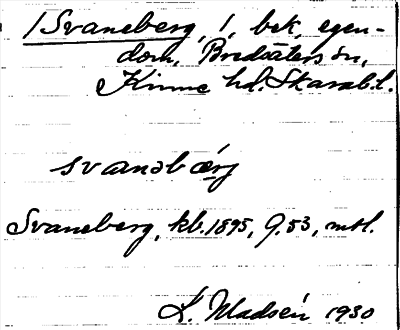 /Svaneberg, /, bek. egen-
dom, Bredsäters sn,
Kinne hd. Skarab.l.
svanəbærj
Svaneberg, kb. 1895, 9.53, mtl.
L. Madsén 1930